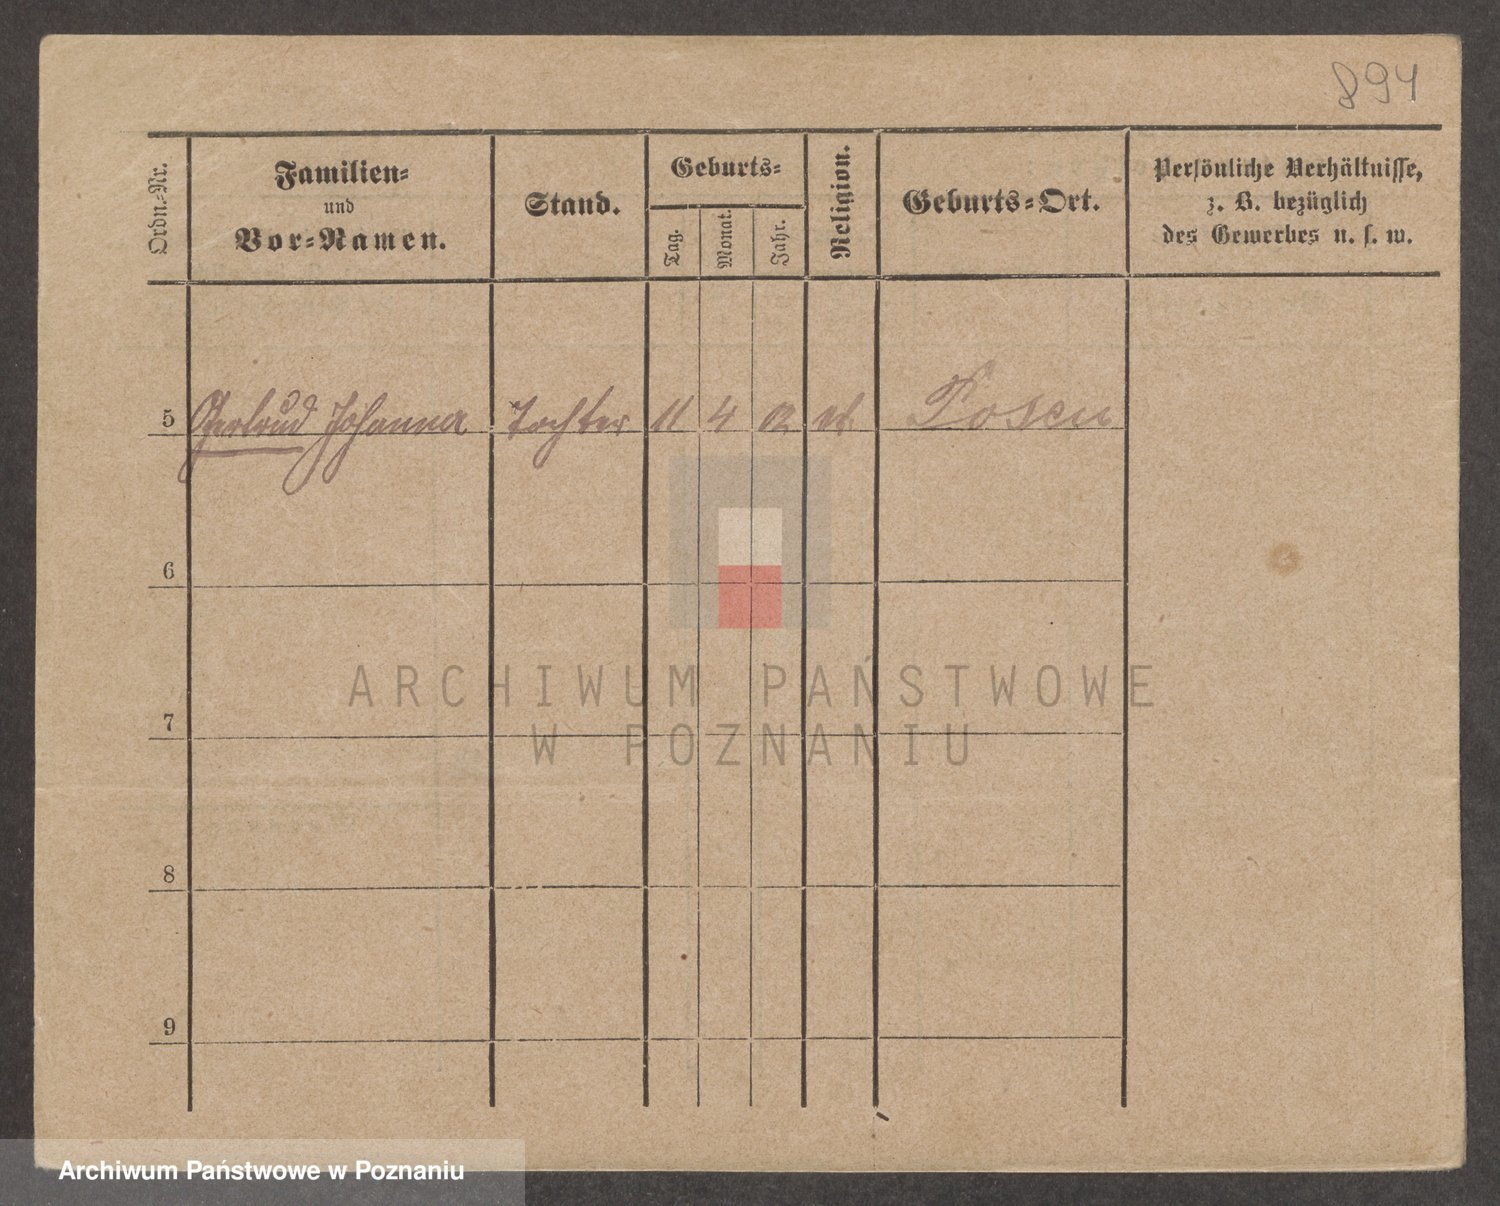 894
Ordn.-Nr.
Familien-
und
Vor-Namen.
Stand.
Geburts-
Tag.
Monat.
Jahr.
Religion.
Geburts-Ort.
Persönliche Verhältnisse,
z. B. bezüglich
des Gewerbes u. s. w.
5 Gertrud Johanna Tochter 11 4 Posen
6
7
8
9
ARCHIWUM PAŃSTWOWE
W POZNANIU
Archiwum Państwowe w Poznaniu